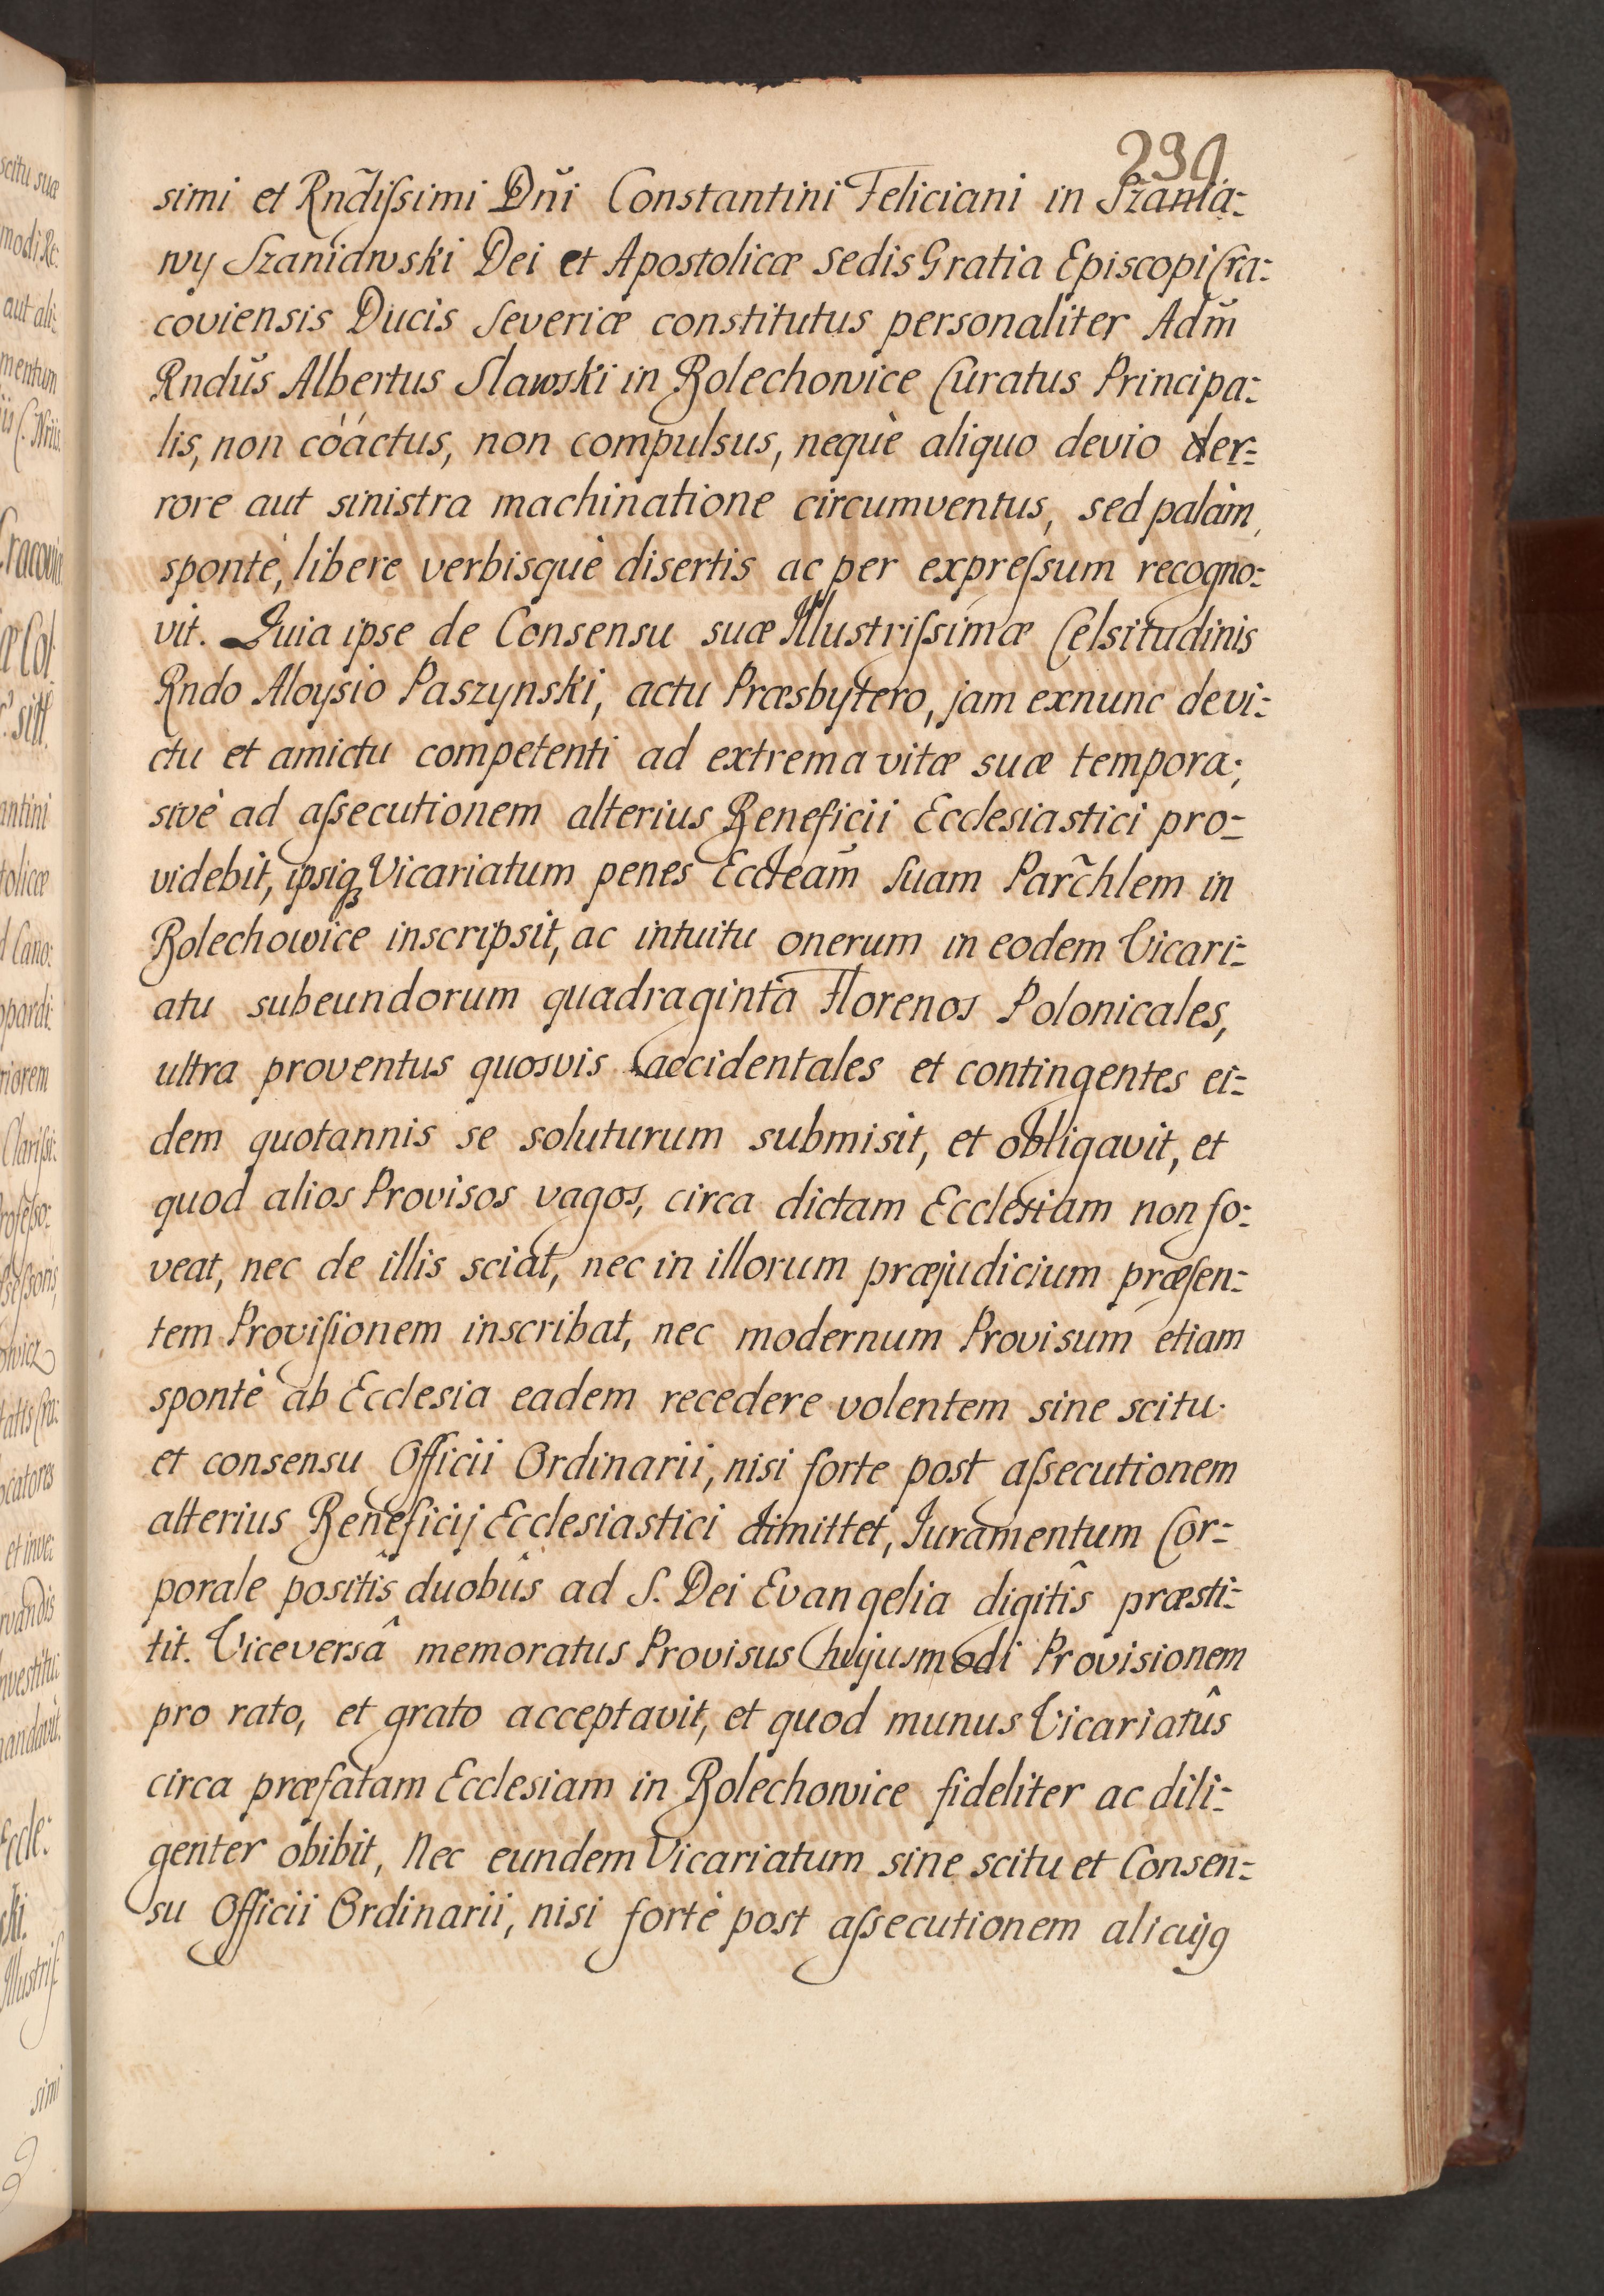 239
simi et Rndiſsimi Dni Constantini Feliciani in Szania:
wy Szaniawski Dei et Apostolicæ Sedis Gratia Episcopi Cra:
coviensis Ducis Severiæ constitutus personaliter Adm̃
Rndus Albertus Slawski in Bolechowice Curatus Principa:
lis, non cóáctus, non compulsus, nequè aliquo devio der:
rore aut sinistra machinatione circumventus, sed palàm,
spontè, libere verbisquè disertis ac per expreſsum recogno:
vit. Quia ipse de Consensu suæ Illustriſsimæ Celsitudinis
Rndo Aloysio Paszynski, actu Præsbytero, jam exnunc de vi:
ctu et amictu competenti ad extrema vitæ suæ tempora;
sivè ad aſsecutionem alterius Beneficii Ecclesiastici pro:
videbit, ipsiqꝫ Vicariatum penes Eccleam̃ Suam Parc̃hlem in
Bolechowice inscripsit, ac intuitu onerum in eodem Vicari:
atu subeundorum quadraginta Florenos Polonicales,
ultra proventus quosvis accidentales et contingentes ei:
dem quotannis se soluturum submisit, et obligavit, et
quod alios Provisos vagos, circa dictam Ecclesiam non fo:
veat, nec de illis sciat, nec in illorum præjudicium præſen:
tem Proviſionem inscribat, nec modernum Provisum etiam
spontè ab Ecclesia eadem recedere volentem sine scitu
et consensu Officii Ordinarii, nisi forte post aſsecutionem
alterius Beneficij Ecclesiastici dimittet, Juramentum Cor:
porale positîs duobûs ad S. Dei Evangelia digitîs præsti:
tit. Viceversâ memoratus Provisus hujusmodi Provisionem
pro rato, et grato acceptavit, et quod munus Vicariatûs
circa præfatam Ecclesiam in Bolechowice fideliter ac dili:
genter obibit, Nec eundem Vicariatum sine scitu et Consen:
su Officii Ordinarii, nisi fortè post aſsecutionem alicujꝯ